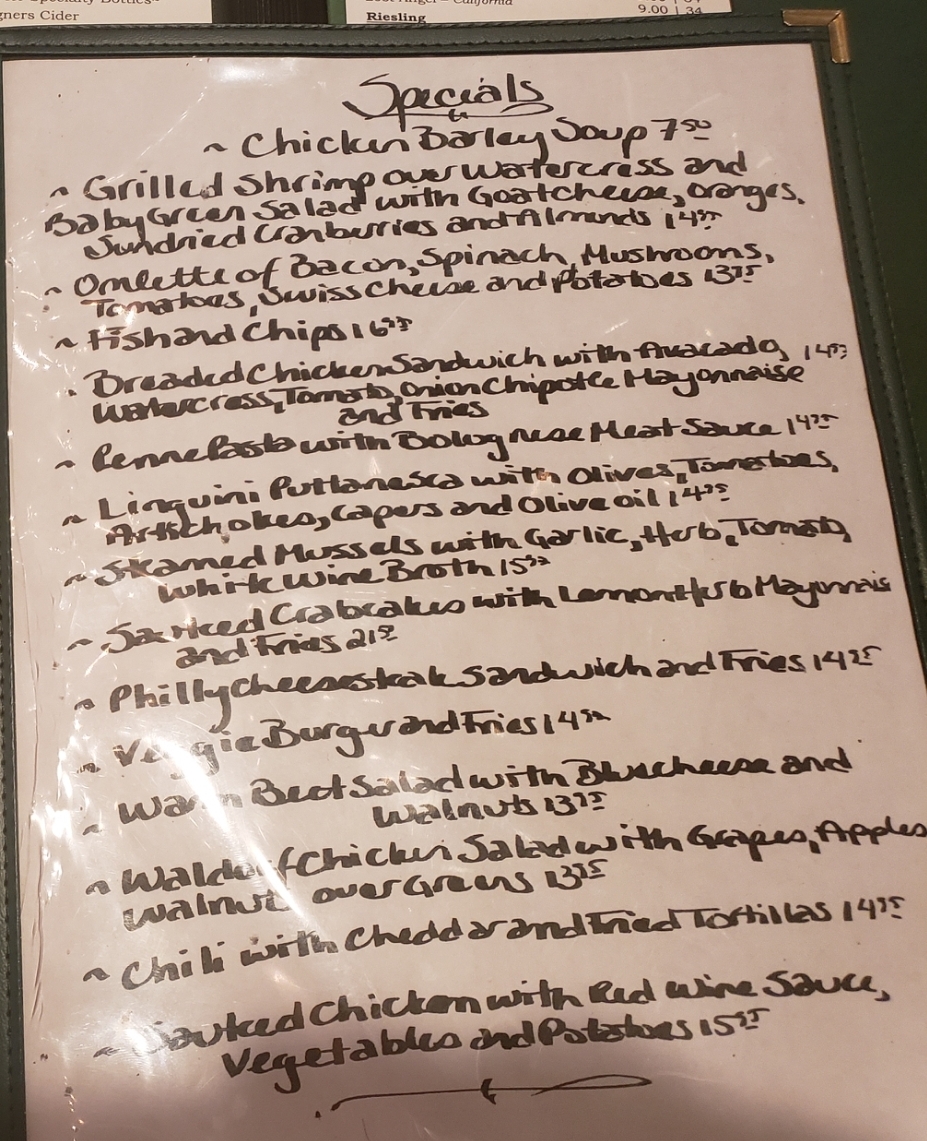 ners Cider
Riesling
9.00 | 34
Specials
~ Chicken Barley Soup 7 50
~ Grilled Shrimp over Watercress and
Baby Green Salad with Goat cheese, oranges,
Sundried Cranberries and Almonds 14 95
~ Omlette of Bacon, Spinach, Mushrooms,
Tomatoes, Swiss Cheese and Potatoes 13 75
~ Fish and Chips 16 95
~ Breaded Chicken Sandwich with Avacado, 14 95
Watercress, Tomato, Onion Chipotle Mayonnaise
and Fries
~ Penne Pasta with Bolognese Meat Sauce 14 95
~ Linguini Puttanesca with Olives, Tomatoes,
Artichokes, Capers and Olive oil 14 95
~ Steamed Mussels with Garlic, Herb, Tomato,
White Wine Broth 15
~ Sauteed Crabcakes with Lemon Herb Mayonnais
and Fries 21
~ Philly cheesesteak Sandwich and Fries 14 25
~ Veggie Burger and Fries 14
~ Warm Beet Salad with Bluecheese and
Walnuts 13 75
~ Waldorf Chicken Salad with Grapes, Apples
Walnut over Greens 13 95
~ Chili with Cheddar and Fried Tortillas 14 95
~ Sauteed Chicken with Red Wine Sauce,
Vegetables and Potatoes 15 95